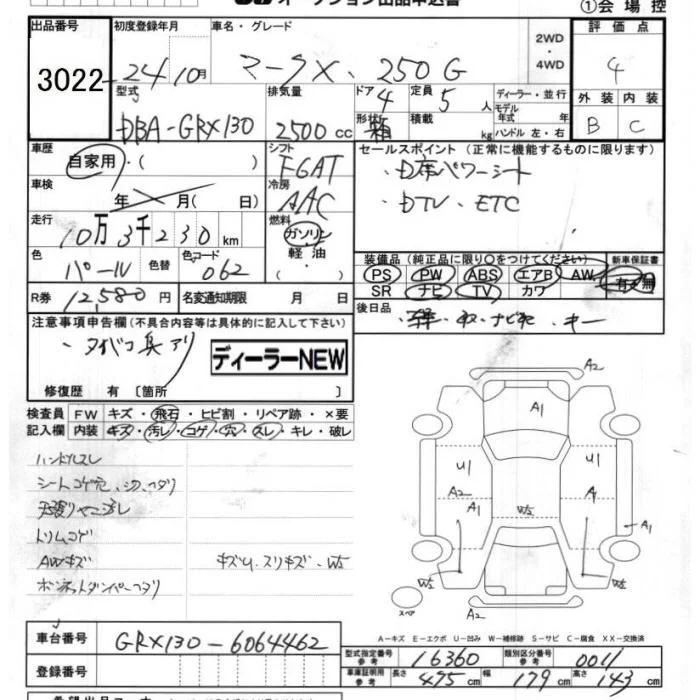 オークション出品申込書
①会場控
出品番号 初度登録年月 車名・グレード 2WD ・ 4WD 評価点
3022 24 10月 マークX、250G 4
型式 排気量 ドア 定員 ディーラー・並行 外装 内装
DBA-GRX130 2500cc 4 5人 モデル年式 年式 B C
形状 箱 積載 kg ハンドル 左・右
車歴 シフト セールスポイント (正常に機能するものに限ります)
自家用・( ) FGAT ・D席パワーシート
車検 年 月( 日) 冷房 AAC ・DTV、ETC
走行 10万3千230km 燃料 ガソリン
色 色替 色コード 軽油・( )
パール 062
装備品 (純正品に限り○をつけてください) 新車保証書
PS PW ABS エアB AW 有・無
SR ナビ TV カワ
R券 12,580円 名変通知期限 月 日
後日品
注意事項申告欄(不具合内容等は具体的に記入して下さい)
・タバコ臭アリ
ディーラーNEW
修復歴 有 〔箇所 〕
検査員 FW キズ・飛石・ヒビ割・リペア跡・×要
記入欄 内装 キズ・汚レ・コゲ・穴・スレ・キレ・破レ
ハンドルスレ
シートコゲ穴、
トリムコゲ
AWキズ キズU、スリキズ、W5
ボンネットダンパー
A2
A1
U1 U1
A2 A1 W5 A
A1
W5 W5
スペア A2
A-キズ E-エクボ U-凹み W-補修跡 S-サビ C-腐食 XX-交換済
車台番号 GRX130-6064462
型式指定番号 参考 16360 類別区分番号 参考 0011
登録番号 車庫証明用 参考 長さ 475cm 幅 179cm 高さ 143cm